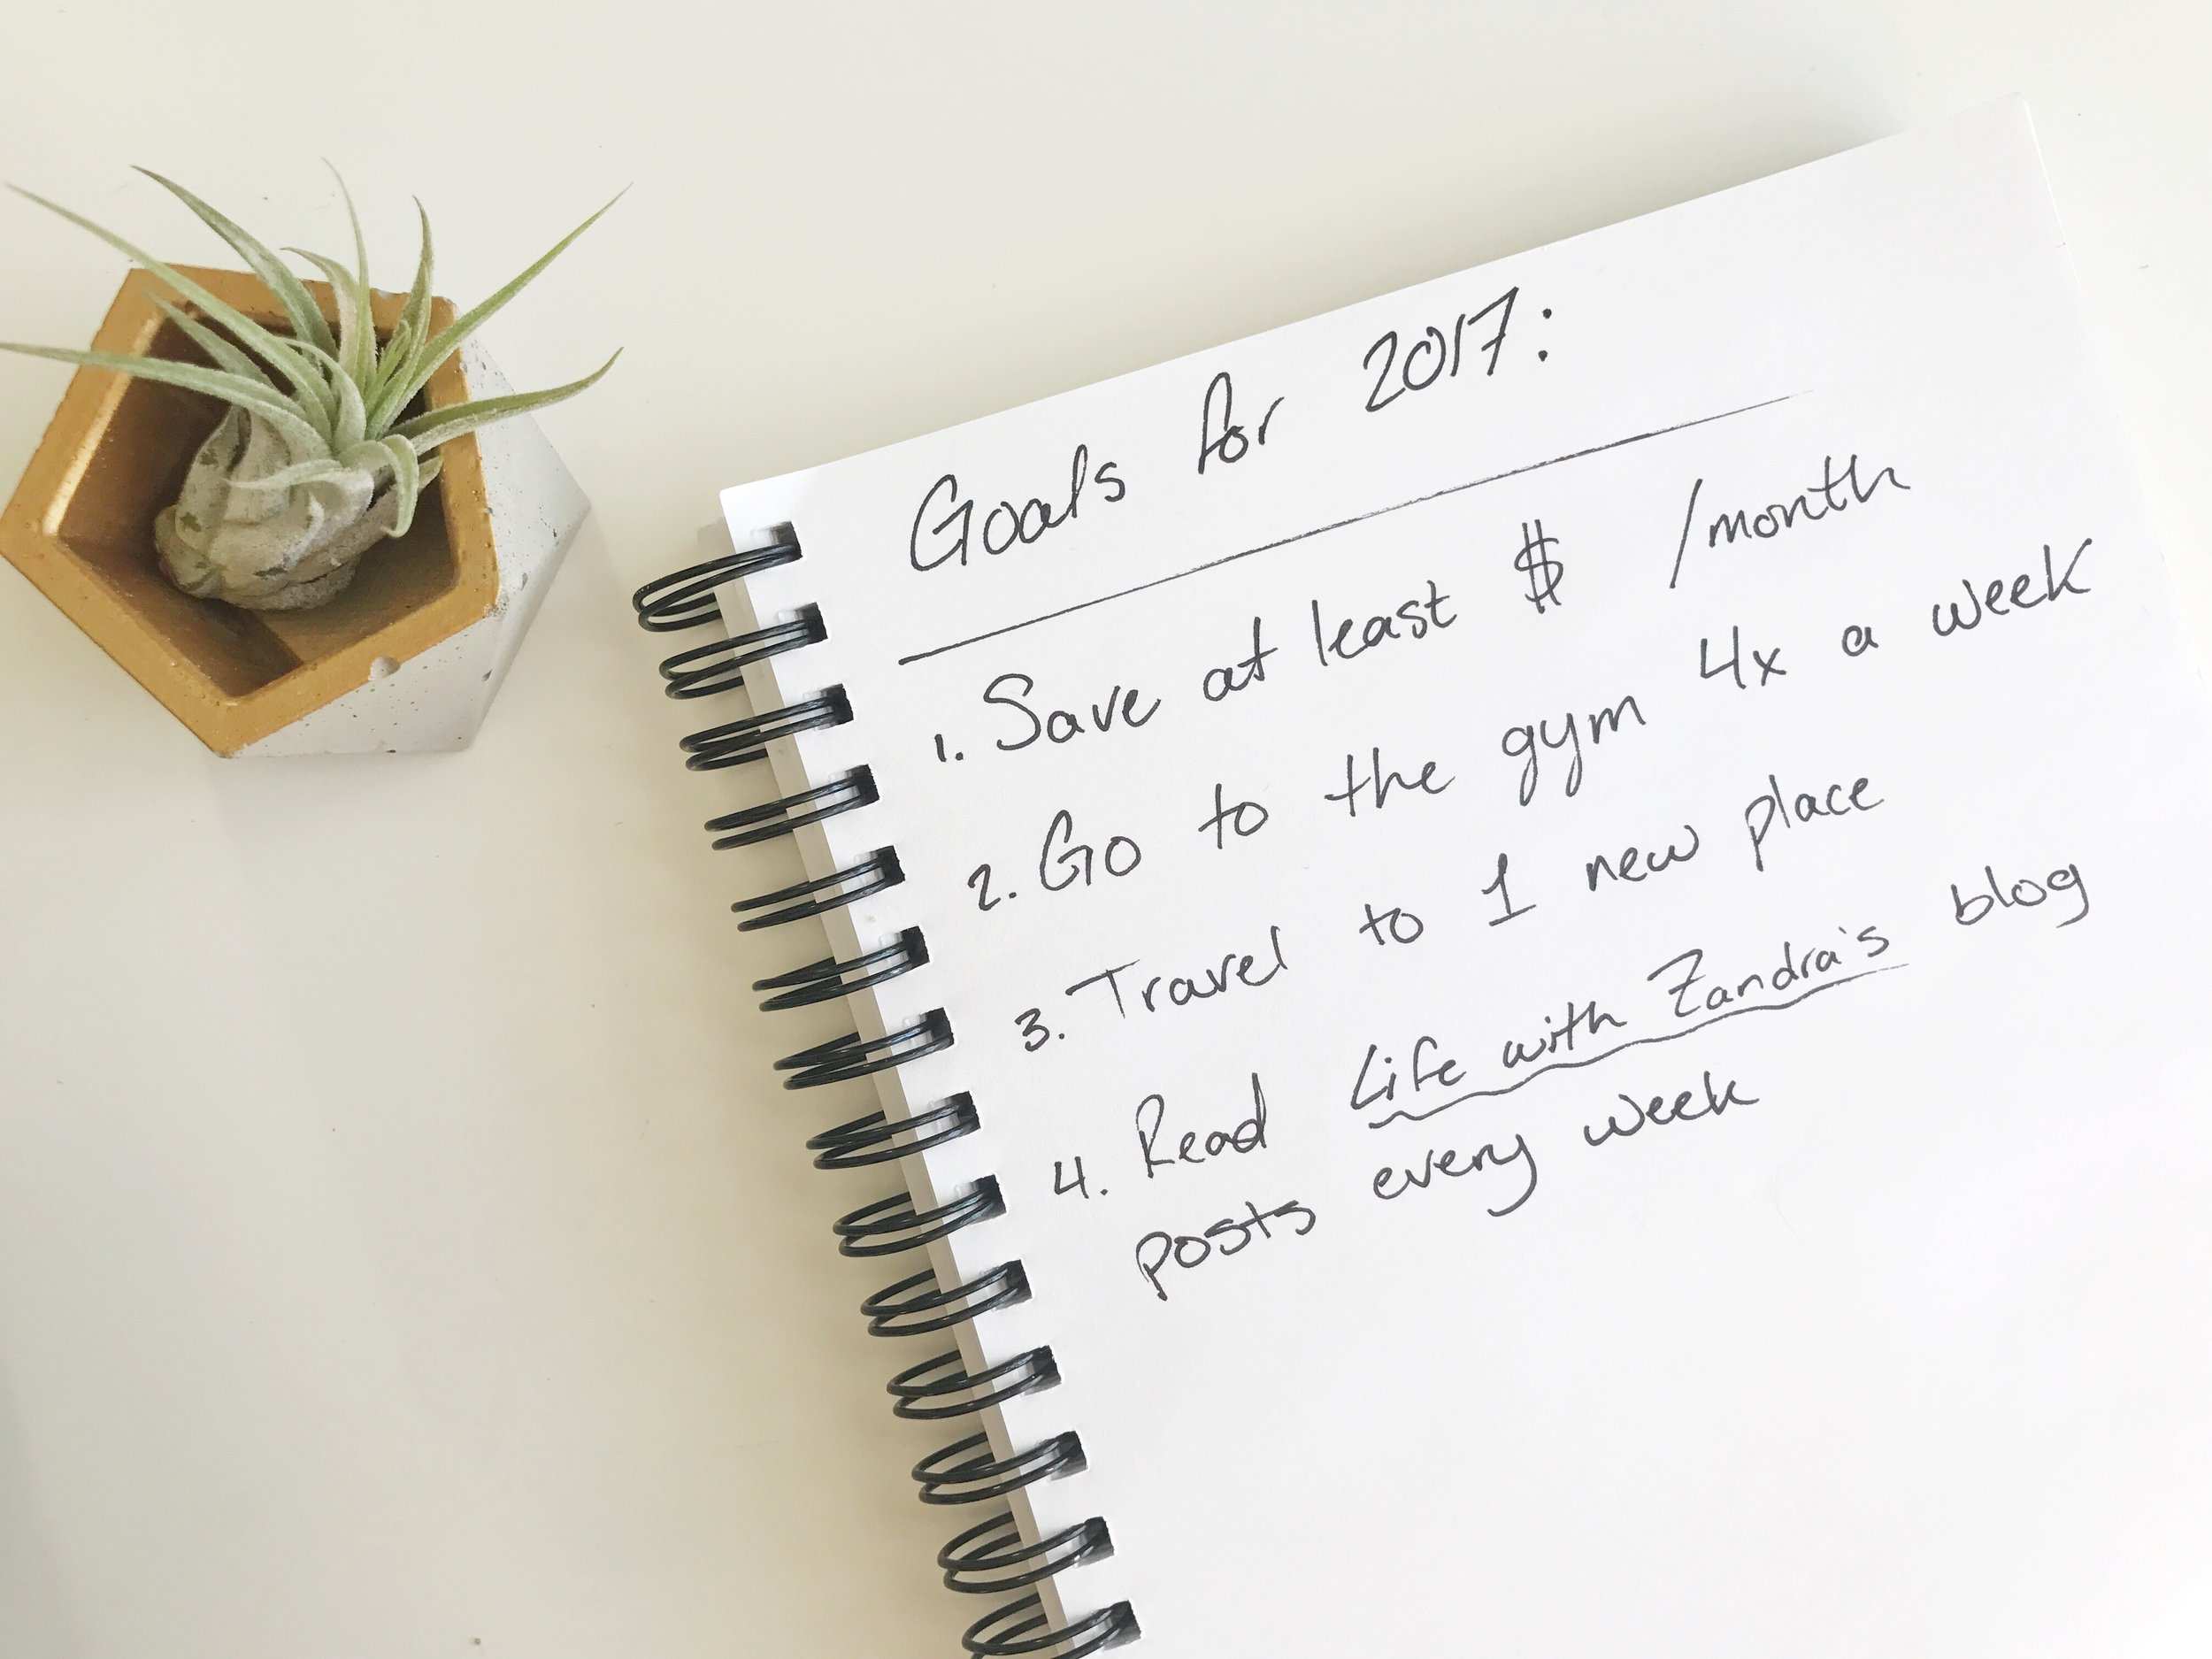 Goals for 2017:
1. Save at least $ /month
2. Go to the gym 4x a week
3. Travel to 1 new place
4. Read Life with Zandra's blog
posts every week